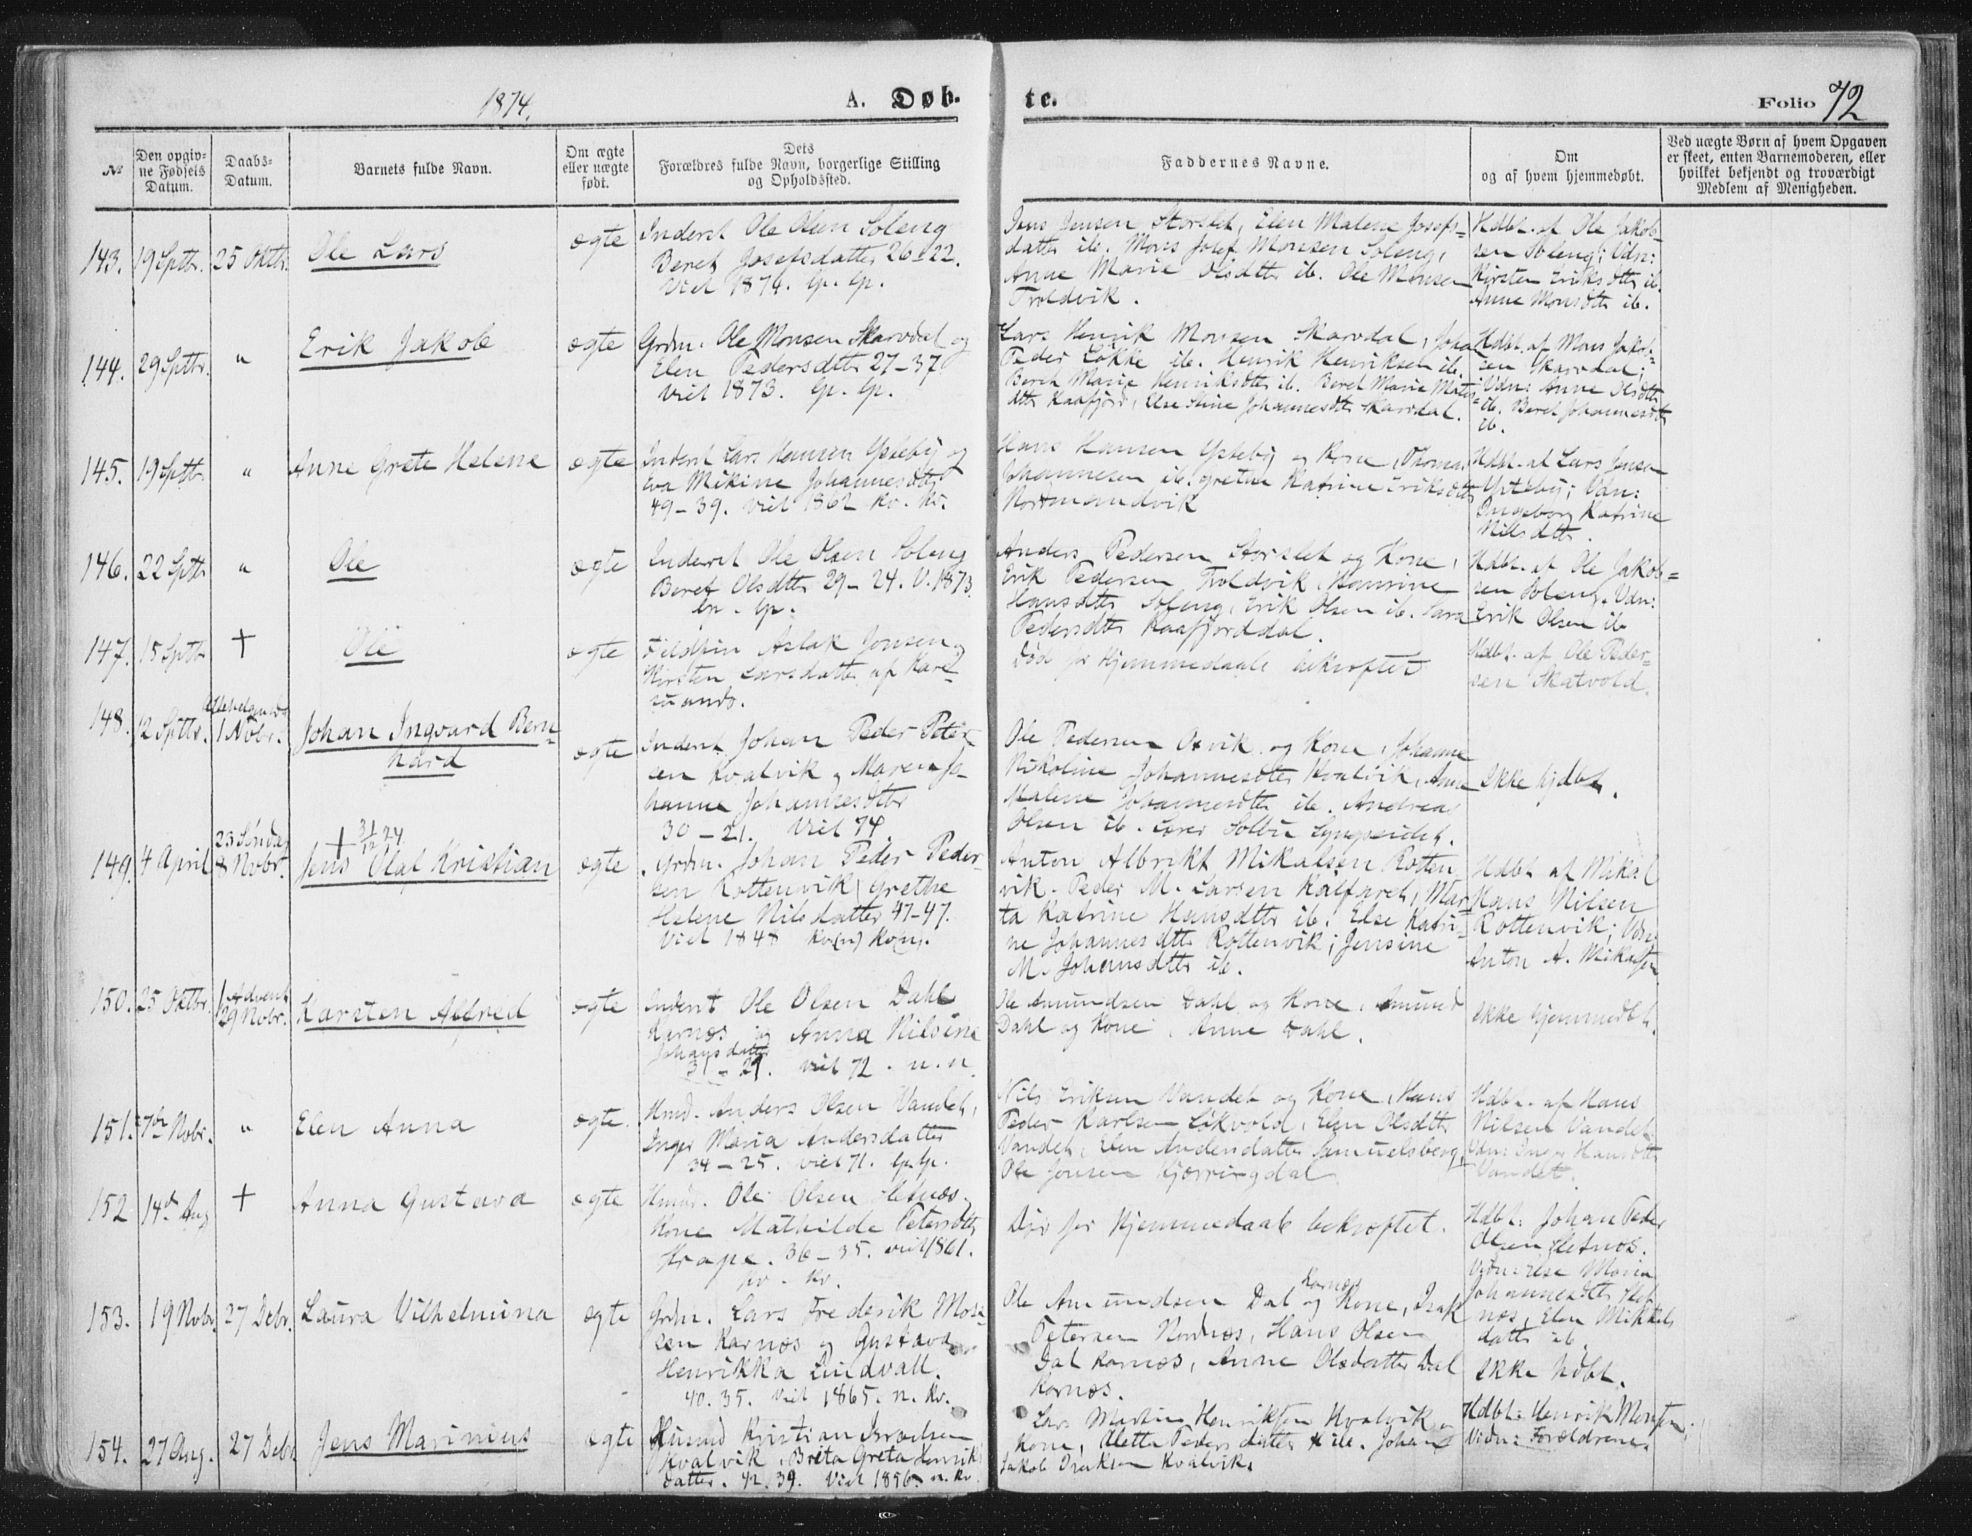 1874.
A. Døb-
te.
Folio 72
№
Den opgiv-
ne Fødsels
Datum.
Daabs-
Datum.
Barnets fulde Navn.
Om ægte
eller uægte
født.
Dets
Forældres fulde Navn, borgerlige Stilling
og Opholdssted.
Faddernes Navne.
Om
og af hvem hjemmedøbt.
Ved uægte Børn af hvem Opgaven
er skeet, enten Barnemoderen, eller
hvilket bekjendt og troværdigt
Medlem af Menigheden.
143. 19 Septbr. 25 Oktbr. Ole Lars ægte
Inderst Ole Olsen Soleng
Beret Josefsdatter 26-22.
Viet 1874. lp. lp.
Jens Jensen Storslet, Elen Malene Josefs-
datter ib. Mons Josef Monsen Soleng,
Anne Marie Olsdtr ib. Ole Monsen
Troldvik.
Hdbt. af Ole Jakob-
sen Soleng; Vdn:
Kirsten Eriksdtr ib.
Anne Monsdtr ib.
144. 29 Septbr. " Erik Jakob ægte
Grdm. Ole Monsen Skarvdal og
Elen Pedersdtr 27-37
viet 1873. lp. lp.
Lars Henrik Monsen Skarvdal, Johan
Peder Løkke ib. Henrik Henriksen ib.
Beret Marie Henriksdtr ib. Beret Marie Mons-
dtr Kaafjord, Else Stine Johannesdtr Skarvdal.
Hdbt. af Mons Jakob-
sen Skarvdal;
Vdn: Anne Olsdtr
ib. Beret Johannesdtr
ib.
145. 19 Septbr. " Anne Grete Helene ægte
Inderst Lars Hansen Ysteby og
Eva Mikine Johannesdtr
49-39. viet 1862 Kv. Kv.
Hans Hansen Ysteby og Kone, Thomas
Johannesen ib. Grethe Katrine Eriksdtr
Normandvik
Hdbt. af Lars Jensen
Ysteby; Vdn:
Ingeborg Katrine
Nilsdtr.
146. 22 Septbr " Ole ægte
Inderst Ole Olsen Soleng
Beret Olsdtr 29-24. V. 1873.
lp. lp.
Anders Pedersen Storslet og Kone,
Erik Pedersen Troldvik, Hanrine
Hansdtr Soleng, Erik Olsen ib. Sara
Pedersdtr Kaafjorddal.
Hdbt. af Ole Jakob-
sen Soleng. Vdn:
Erik Olsen ib
147. 15 Septbr + Ole ægte
Fieldfin Aslak Jonsen og
Kirsten Larsdatter af Kare-
suando.
Død før Hjemmedaabs bekræftet
Hdbt. af Ole Peder-
sen Skatvold.
148. 12 Septbr. Allehelgensdag
1 Novbr. Johan Ingvard Bern-
hard ægte
Inderst Johan Peder Peter-
sen Kvalvik og Maren Jo-
hanne Johannesdtr
30-21. Viet 74.
Ole Pedersen Oxvik og Kone, Johanne
Nikoline Johannesdtr Kvalvik, Anne
Malene Johannesdtr ib. Andreas
Olsen ib. Lærer Solbu Lyngseidet.
Ikke hjdbt.
149. 4 April 23 Søndag
8 Novbr. + 31/12 74
Jens Olai Kristian ægte
Grdm. Johan Peder Peder-
sen Rottenvik, Grethe
Helene Nilsdatter 47-47.
Viet 1848 Kv(n) Kv(n).
Anton Albrikt Mikalsen Rotten-
vik. Peder M. Larsen Kalfaret, Mar-
ta Katrine Hansdtr ib. Else Katri-
ne Johannesdtr Rottenvik; Jensine
M. Johansdtr ib.
Hdbt. af Mikal
Hans Nilsen
Rottenvik; Vdn:
Anton A. Mikalsen
150. 25 Oktbr. 1 Advent
29 Novbr. Karsten Alfred ægte
Inderst Ole Olsen Dahl
Karnæs og Anna Nilsine
Johansdatter
31-29. viet 72. n. n.
Ole Amundsen Dahl og Kone, Amund
Dahl og Kone, Anne Dahl.
Ikke hjemmedbt.
151. 7de Novbr. " Elen Anna ægte.
Hmd. Anders Olsen Vandet,
Inger Maria Andersdatter
34-25. viet 71. lp. lp.
Nils Eriksen Vandet og Kone, Hans
Peder Karlsen Løkvold, Elen Olsdtr
Vandet, Elen Andersdatter Samuelsberg,
Ole Jonsen Kjærringdal
Hdbt. af Hans
Nilsen Vandet
Vdn: Inger Hansdtr
Vandet.
152 14de Aug + Anna Gustava ægte
Hmd. Ole Olsen Holmnæs.
Kone Mathilde Petersdtr
36-35. viet 1861.
Kv. Kv.
Død før Hjemmedaab bekræftet.
Hdbt: Johan Peder
Olsen
Vidn: Else Maria
Johannesdtr
næs, Elen Mikkels-
datter ib.
153. 19 Novbr. 27 Debr. Laura Vilhelmina ægte
Grdm. Lars Frederik Mose-
sen Karnæs og Gustava
Henrikka Lindvall.
40. 35. viet 1865. n. Kv.
Ole Amundsen Dal Karnæs og Kone, Isak
Petersen Nordnæs, Hans Olsen
Dal Karnæs, Anne Olsdatter Dal
Karnæs.
Ikke hdbt.
154. 27 Aug. 27 Debr Jens Marinius ægte
Husmd Kristian Israelsen
Kvalvik, Brita Greta Henriks-
datter. 42. 39. Viet 1856. n. Kv.
Lars Martin Henriksen Kvalvik og
Kone, Aletta Pedersdatter ib. Johan
Jakob Isaksen Kvalvik.
Hdbt: Henrik Monsen.
Vidn: Forældrene.